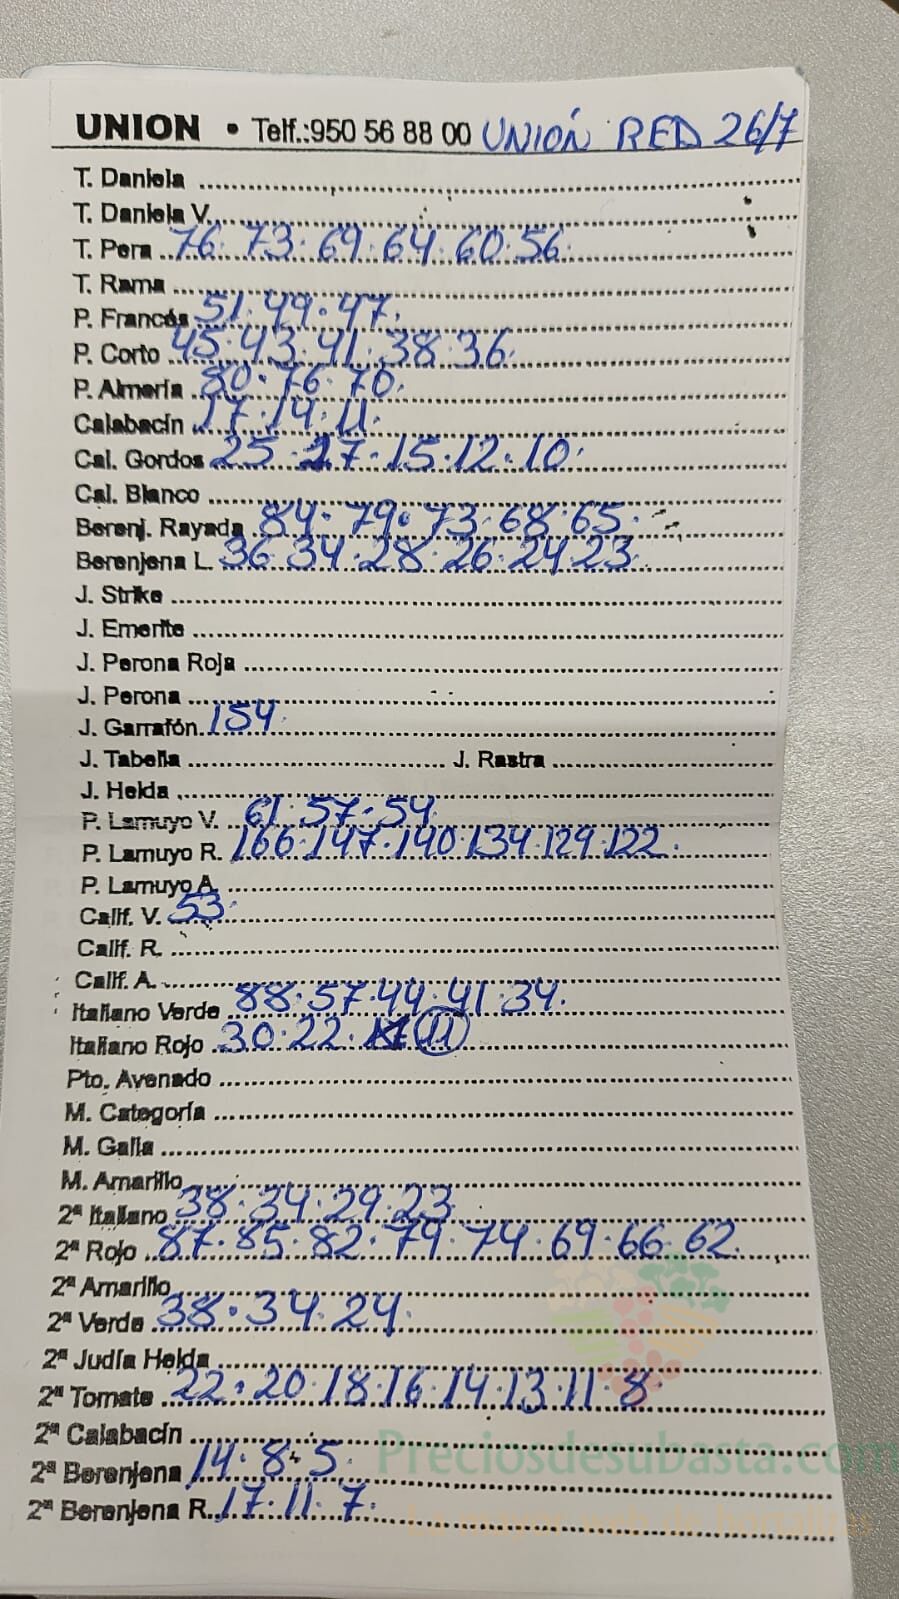 UNION • Telf.:950 56 88 00 UNIÓN RED 26/7
T. Daniela
T. Daniela V.
T. Pera 76. 73. 69. 64. 60. 56.
T. Rama
P. Francés 51. 49. 47.
P. Corto 45. 43. 41. 38. 36.
P. Almería 80. 76. 70.
Calabacín 17. 14. 11.
Cal. Gordos 25. 17. 15. 12. 10.
Cal. Blanco
Berenj. Rayada 84. 79. 73. 68. 65.
Berenjena L. 36. 34. 28. 26. 24. 23.
J. Strike
J. Emerite
J. Perona Roja
J. Perona
J. Garrafón 154.
J. Tabella J. Rastra
J. Helda
P. Lamuyo V. 61. 57. 54.
P. Lamuyo R. 166. 147. 140. 134. 129. 122.
P. Lamuyo A.
Calif. V. 53.
Calif. R.
Calif. A.
Italiano Verde 88. 57. 44. 41. 34.
Italiano Rojo 30. 22. 11
Pto. Avenado
M. Categoría
M. Galia
M. Amarillo
2ª Italiano 38. 34. 29. 23.
2ª Rojo 87. 85. 82. 79. 74. 69. 66. 62.
2ª Amarillo
2ª Verde 38. 34. 24.
2ª Judía Helda
2ª Tomate 22. 20. 18. 16. 14. 13. 11. 8.
2ª Calabacín
2ª Berenjena 14. 8. 5.
Preciosdesubasta.com
2ª Berenjena R. 17. 11. 7.
La mayor web de hortalizas